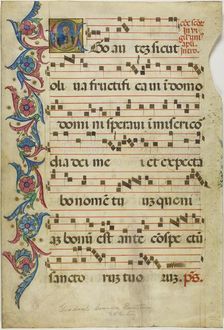 Ego au tez sicut
oli ua fructifi caui i domo
domini speraui i miserico
dia dei me i et expecta
bo nomē tu uz quoni
az bonū est ante cōspe ctū
sancto ruz tuo ruz. ps.